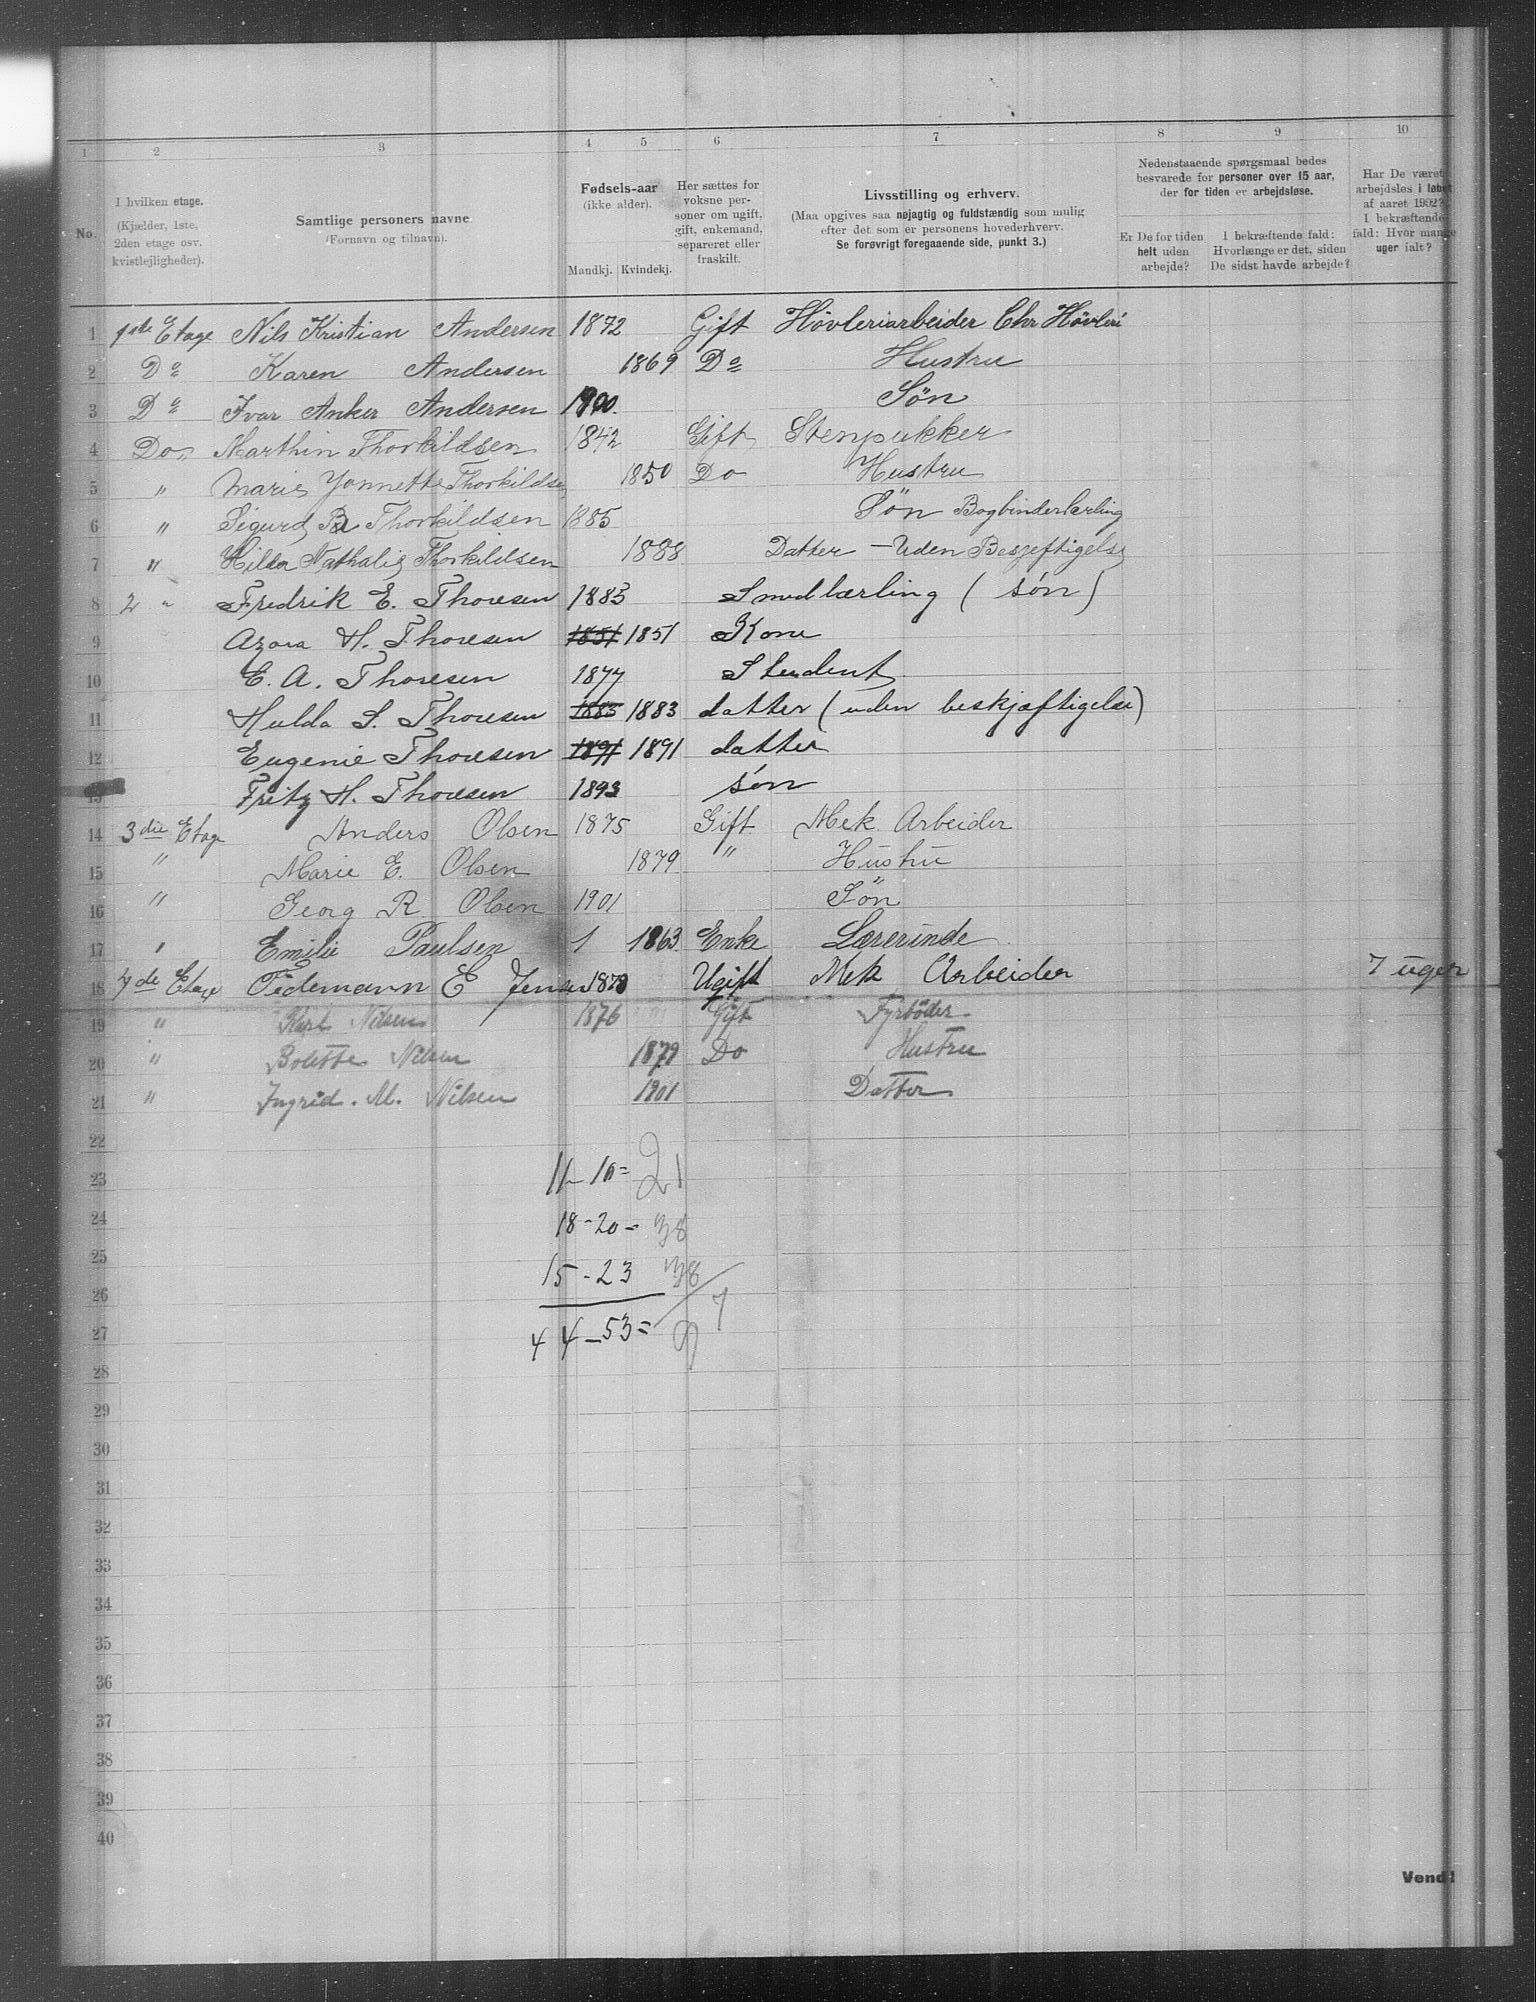 1 2 3 4 5 6 7 8 9 10
No.
I hvilken etage.
(Kjælder, 1ste, 2den etage osv. kvistlejligheder).
Samtlige personers navne
(Fornavn og tilnavn).
Fødsels-aar
(ikke alder).
Mandkj. Kvindekj.
Her sættes for voksne personer om ugift, gift, enkemand, separeret eller fraskilt.
Livsstilling og erhverv.
(Maa opgives saa nøjagtig og fuldstændig som mulig
efter det som er personens hovederhverv.
Se forøvrigt foregaaende side, punkt 3.)
Nedenstaaende spørgsmaal bedes
besvarede for personer over 15 aar,
der for tiden er arbejdsløse.
Er De for tiden helt uden arbejde?
I bekræftende fald: Hvorlænge er det, siden De sidst havde arbejde?
Har De været arbejdsløs i løbet af aaret 1902? I bekræftende fald: Hvor mange uger ialt?
1 1ste Etage Nils Kristian Andersen 1872 Gift Hövleriarbeider Chr Hövleri
2 Do Karen Andersen 1869 Do Hustru
3 Do Ivar Anker Andersen 1900. Søn
4 Do Marthin Thorkildsen 1842 Gift Stenpukker
5 " Marie Yonnette Thorkildse 1850 Do Hustru
6 " Sigurd Thorkildsen 1885 Søn Bogbinderlærling
7 " Hilda Nathalie Thorkildsen 1888 Datter - Uden Besjeftigelse
8 2 " Fredrik E. Thoresen 1885 Smedlærling ( søn )
9 Azora H. Thoresen 1851 1851 Kone
10 E. A. Thoresen 1877 Student
11 Hulda S. Thoresen 1883 1883 datter ( uden beskjæftigelse )
12 Eugenie Thoresen 1891 1891 datter
13 Fritz H. Thoresen 1893 søn
14 3die Etage Anders Olsen 1875 Gift Mek. Arbeider
15 " Marie E. Olsen 1879 " Hustru
16 " Georg R. Olsen 1901 Søn
17 " Emilie Paulsen 1 1863 Enke Lærerinde
18 4de Etage Tidemann E Jensen 1878 Ugift Mek Arbeider 7 uger
19 " Karl Nilsen 1876 Gift Fyrbøder
20 " Bolette Nilsen 1879 Do Hustru
21 " Ingrid. M. Nilsen 1901 Datter
22
23 11 - 10 = 21
24 18 - 20 = 38
25 15 - 23 38
26
27 44 - 53 = 97
28
29
30
31
32
33
34
35
36
37
38
39
40
Vend!